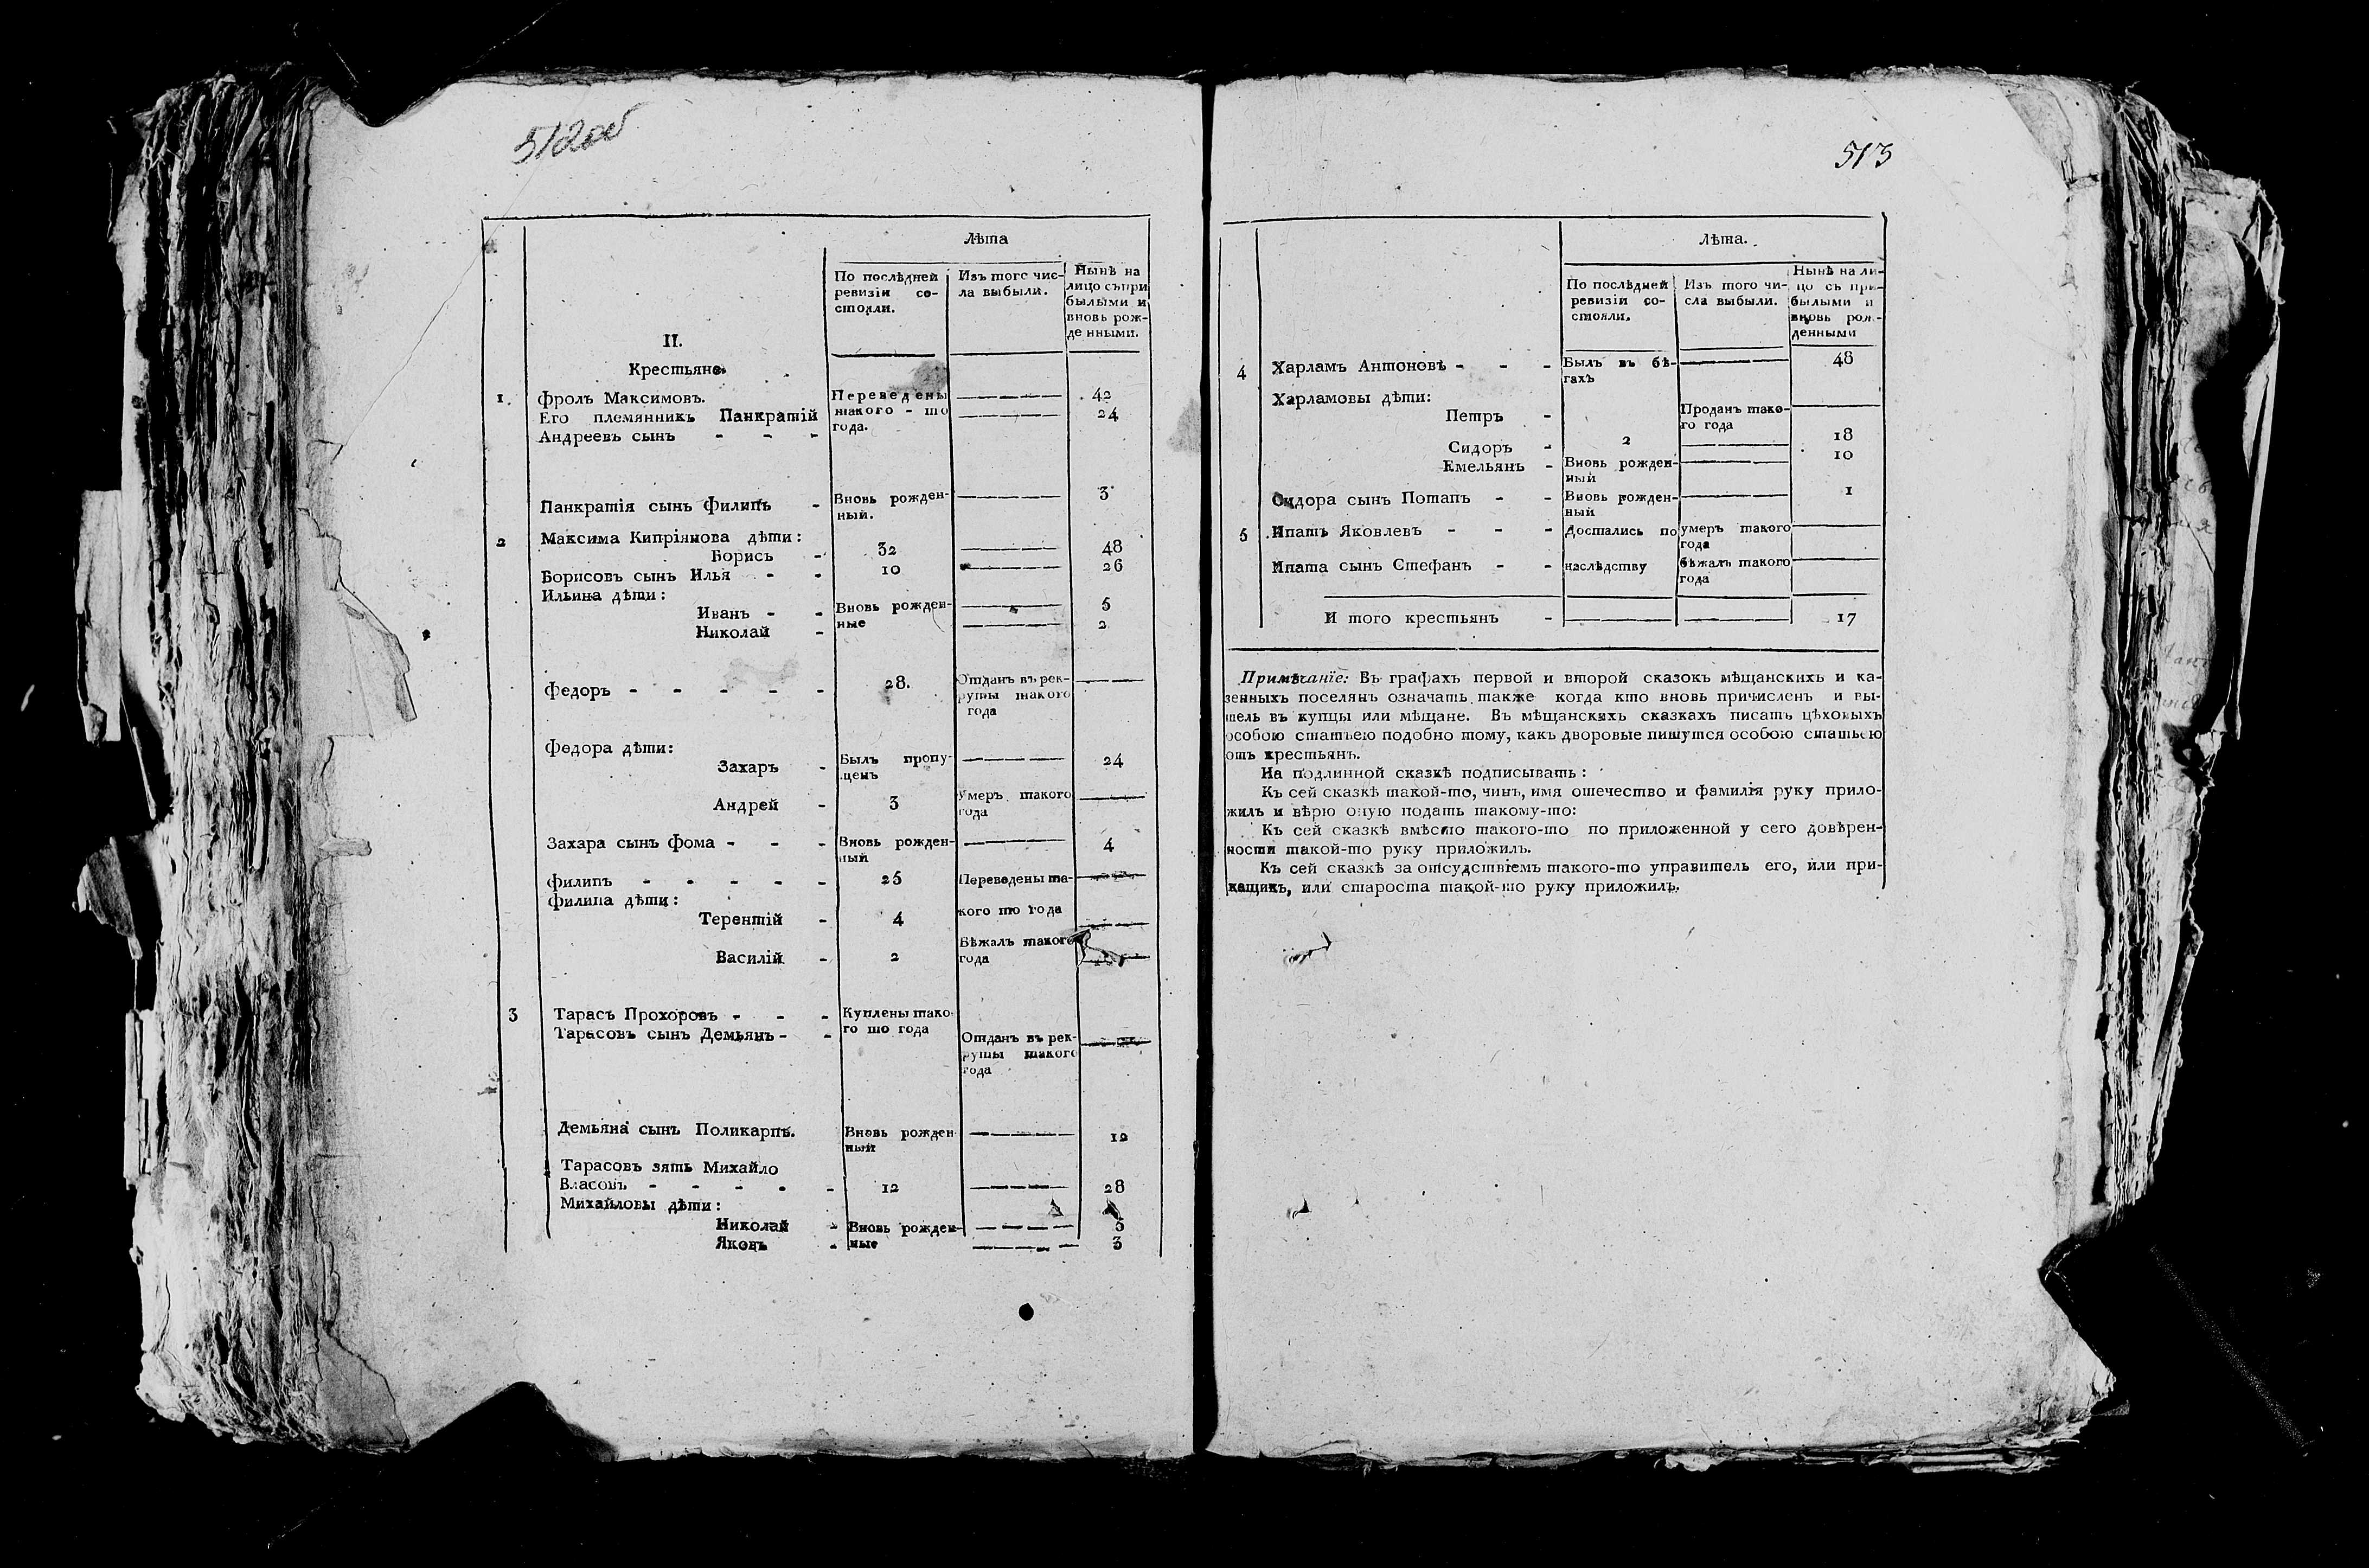 512об
Лѣта
По послѣдней ревизіи со- стояли. Изъ того чис- ла выбыли. Нынѣ на лицо съ при былыми и вновь рож- денными.
II.
Крестьяне.
1. Фролъ Максимовъ. Переведены 42
Его племянникъ Панкратій такого - то 24
Андреевъ сынъ - - - года.
Панкратія сынъ Филипъ - Вновь рожден- ный. 3
2 Максима Кипріянова дѣти:
Борисъ - 32 48
Борисовъ сынъ Илья - - 10 26
Ильина дѣти:
Иванъ - - Вновь рожден- 5
Николай - ные 2
Федоръ - - - - - 28. Отданъ въ рек- руты такого года
Федора дѣти:
Захаръ - Былъ пропу- щенъ 24
Андрей - 3 Умеръ такого года
Захара сынъ Фома - - - Вновь рожден- ный 4
Филипъ - - - - - 25 Переведены та-
Филипа дѣти:
Терентій - 4 кого то года
Василій - 2 Бѣжалъ такого года
3 Тарасъ Прохоровъ - - - Куплены тако-
Тарасовъ сынъ Демьянъ - - го то года Отданъ въ рек- руты такого года
Демьяна сынъ Поликарпъ. Вновь рожден ный 12
Тарасовъ зять Михайло
Власовъ - - - - - 12 28
Михайловы дѣти:
Николай - Вновь рожден- 5
Яковъ - ные 3
513
Лѣта.
По послѣдней ревизіи со- стояли. Изъ того чи- сла выбыли. Нынѣ на ли- цо съ при- былыми и вновь рож- денными
4 Харламъ Антоновъ - - - Былъ въ бѣ- гахъ 48
Харламовы дѣти:
Петръ - Проданъ тако- го года
Сидоръ - 2 18
Емельянъ - Вновь рожден- ный 10
Сидора сынъ Потапъ - - Вновь рожден- ный 1
5 Ипатъ Яковлевъ - - - Достались по умеръ такого года
Ипата сынъ Стефанъ - - наслѣдству бѣжалъ такого года
И того крестьянъ - 17
Примѣчаніе: Въ графахъ первой и второй сказокъ мѣщанскихъ и ка-
зенныхъ поселянъ означать также когда кто вновь причисленъ и вы-
шелъ въ купцы или мѣщане. Въ мѣщанскихъ сказкахъ писать цѣховыхъ
особою статьею подобно тому, какъ дворовые пишутся особою статьею
отъ крестьянъ.
На подлинной сказкѣ подписывать:
Къ сей сказкѣ такой-то, чинъ, имя отечество и фамилія руку прило-
жилъ и вѣрю оную подать такому-то:
Къ сей сказкѣ вмѣсто такого-то по приложенной у сего довѣрен-
ности такой-то руку приложилъ.
Къ сей сказкѣ за отсудствіемъ такого-то управитель его, или при-
кащикъ, или староста такой-то руку приложилъ.